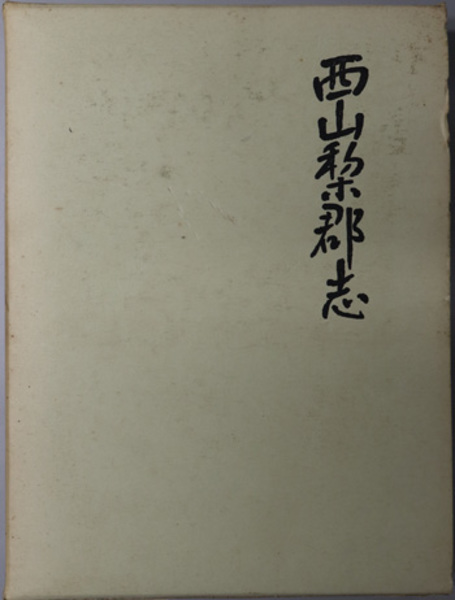 西山梨郡志